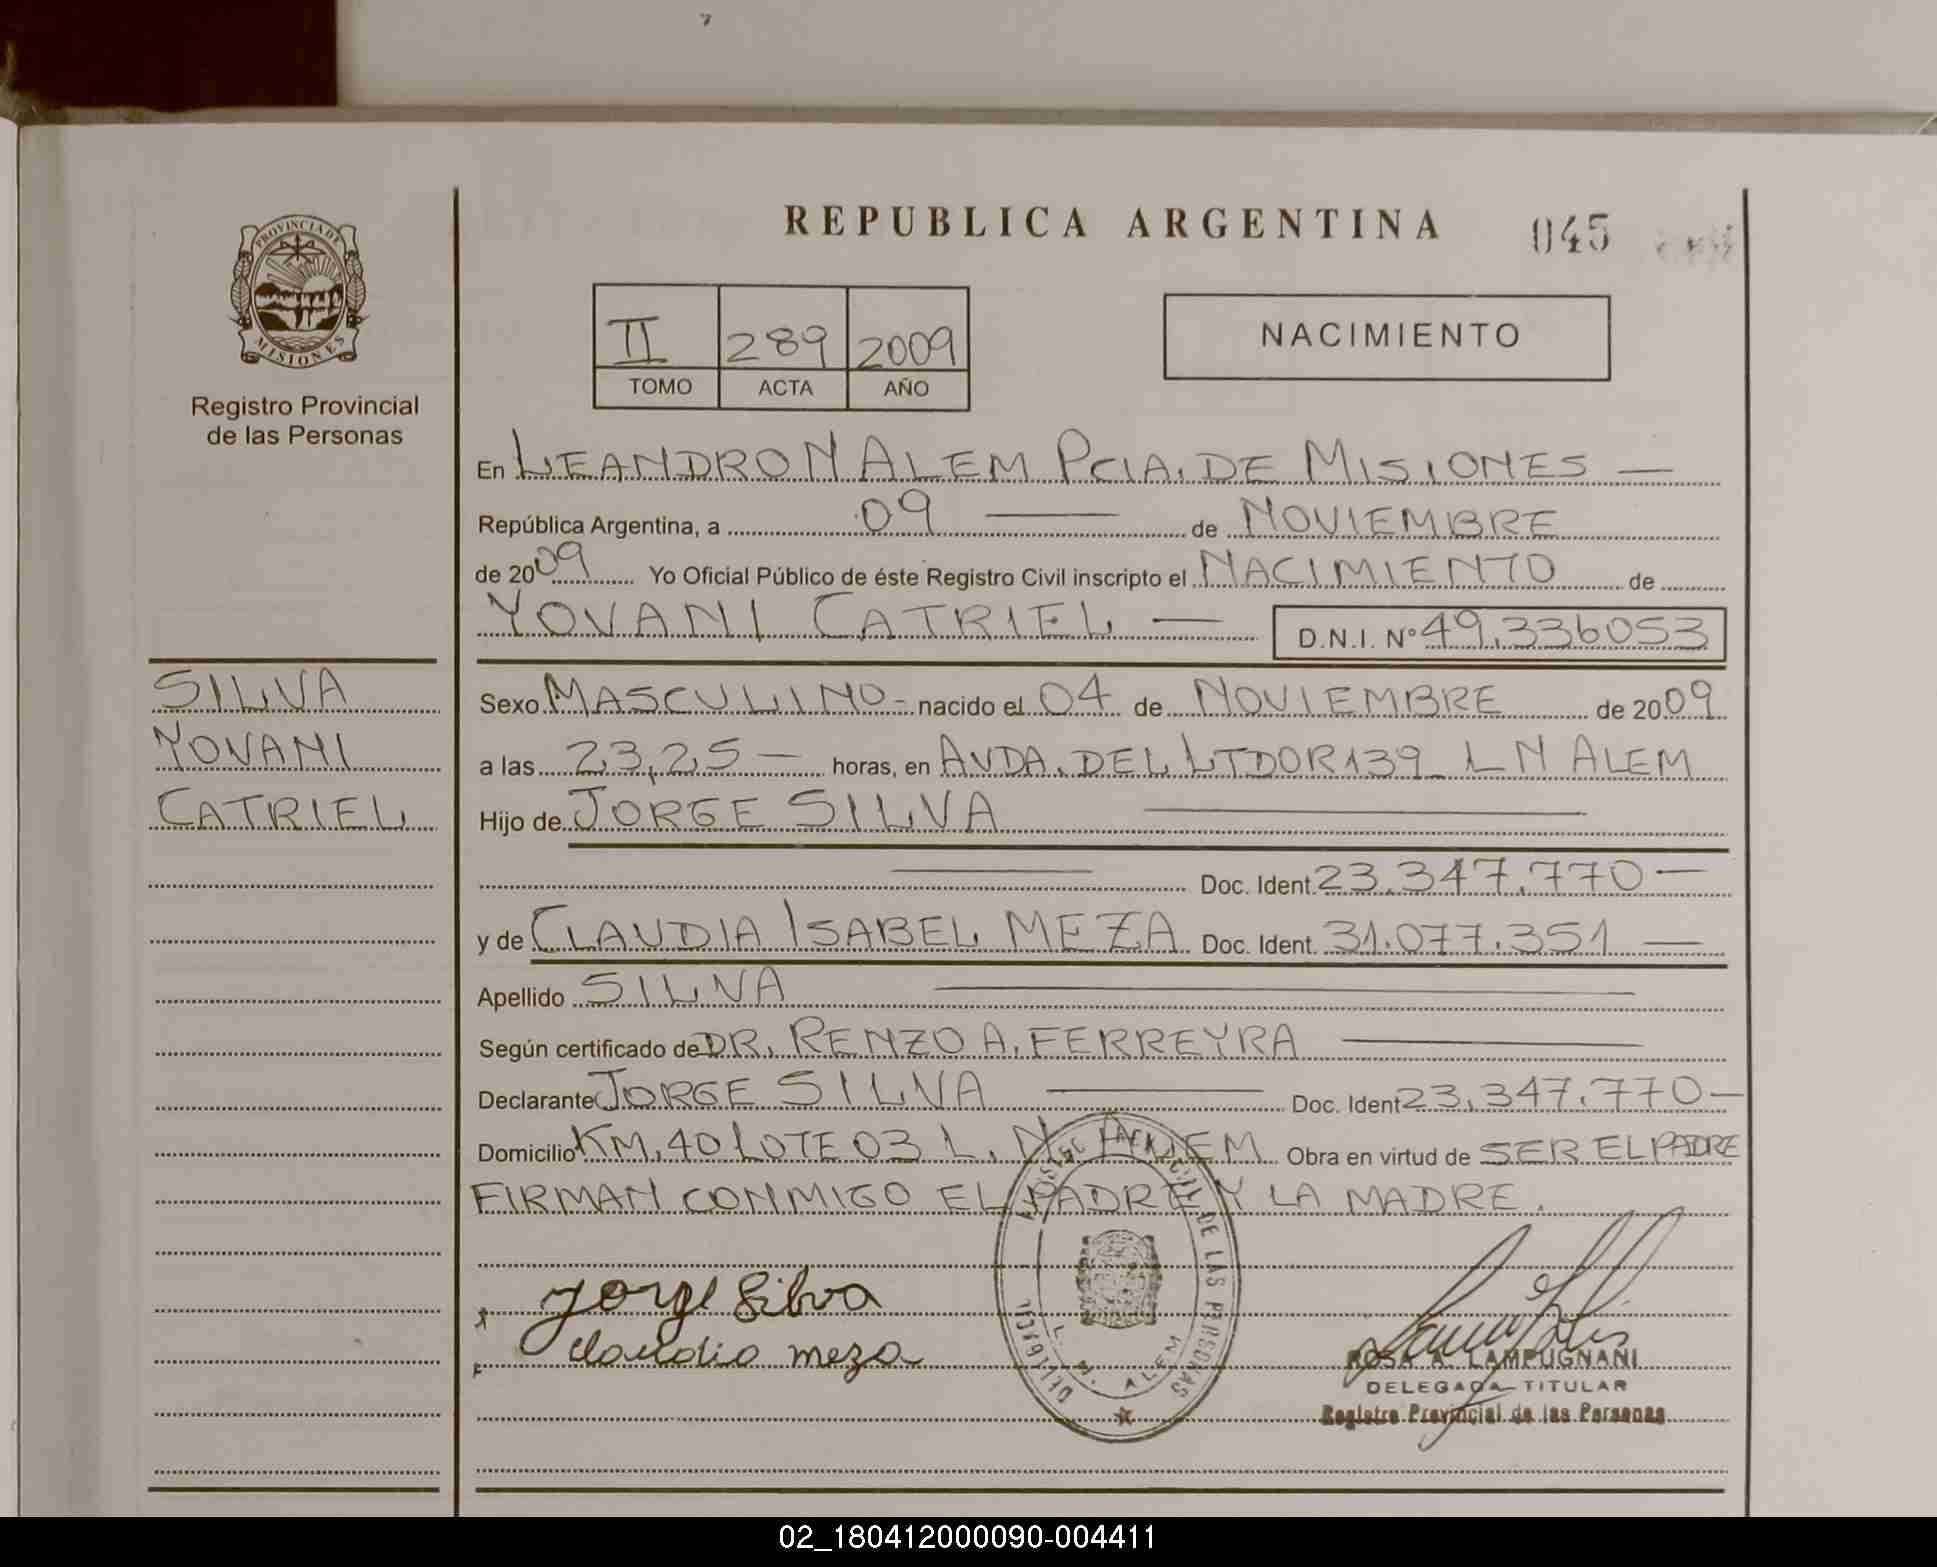 REPUBLICA ARGENTINA
045
PROVINCIA DE
MISIONES
Registro Provincial
de las Personas
II 289 2009
TOMO ACTA AÑO
NACIMIENTO
En LEANDRO N ALEM PCIA. DE MISIONES —
República Argentina, a 09 — de NOVIEMBRE
de 2009 Yo Oficial Público de éste Registro Civil inscripto el NACIMIENTO de
YOVANI CATRIEL — D.N.I. Nº 49.336053
SILVA
YOVANI
CATRIEL
Sexo MASCULINO - nacido el 04 de NOVIEMBRE de 2009
a las 23,25 — horas, en AVDA. DEL LTDOR 139 L N ALEM
Hijo de JORGE SILVA —
— Doc. Ident. 23.347.770 —
y de CLAUDIA ISABEL MEZA Doc. Ident. 31.077.351 —
Apellido SILVA —
Según certificado de DR. RENZO A. FERREYRA —
Declarante JORGE SILVA — Doc. Ident 23.347.770 —
Domicilio KM. 40 LOTE 03 L. N. ALEM Obra en virtud de SER EL PADRE
FIRMAN CONMIGO EL PADRE Y LA MADRE.
Jorge Silva
Claudia meza
DE LAS PERSONAS
L. N. ALEM
ROSA A. LAMPUGNANI
DELEGADA TITULAR
Registro Provincial de las Personas
02_180412000090-004411